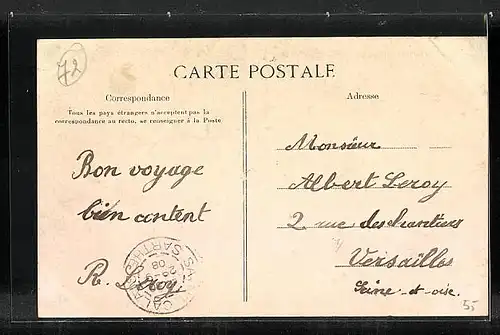 72
CARTE POSTALE
Correspondance
Tous les pays étrangers n'acceptent pas la
correspondance au recto, se renseigner à la Poste
Bon voyage
bien content
R. Leroy
Adresse
Monsieur
Albert Leroy
2 rue des chantiers
Versailles
Seine-et-oise.
SARTHE
08
55